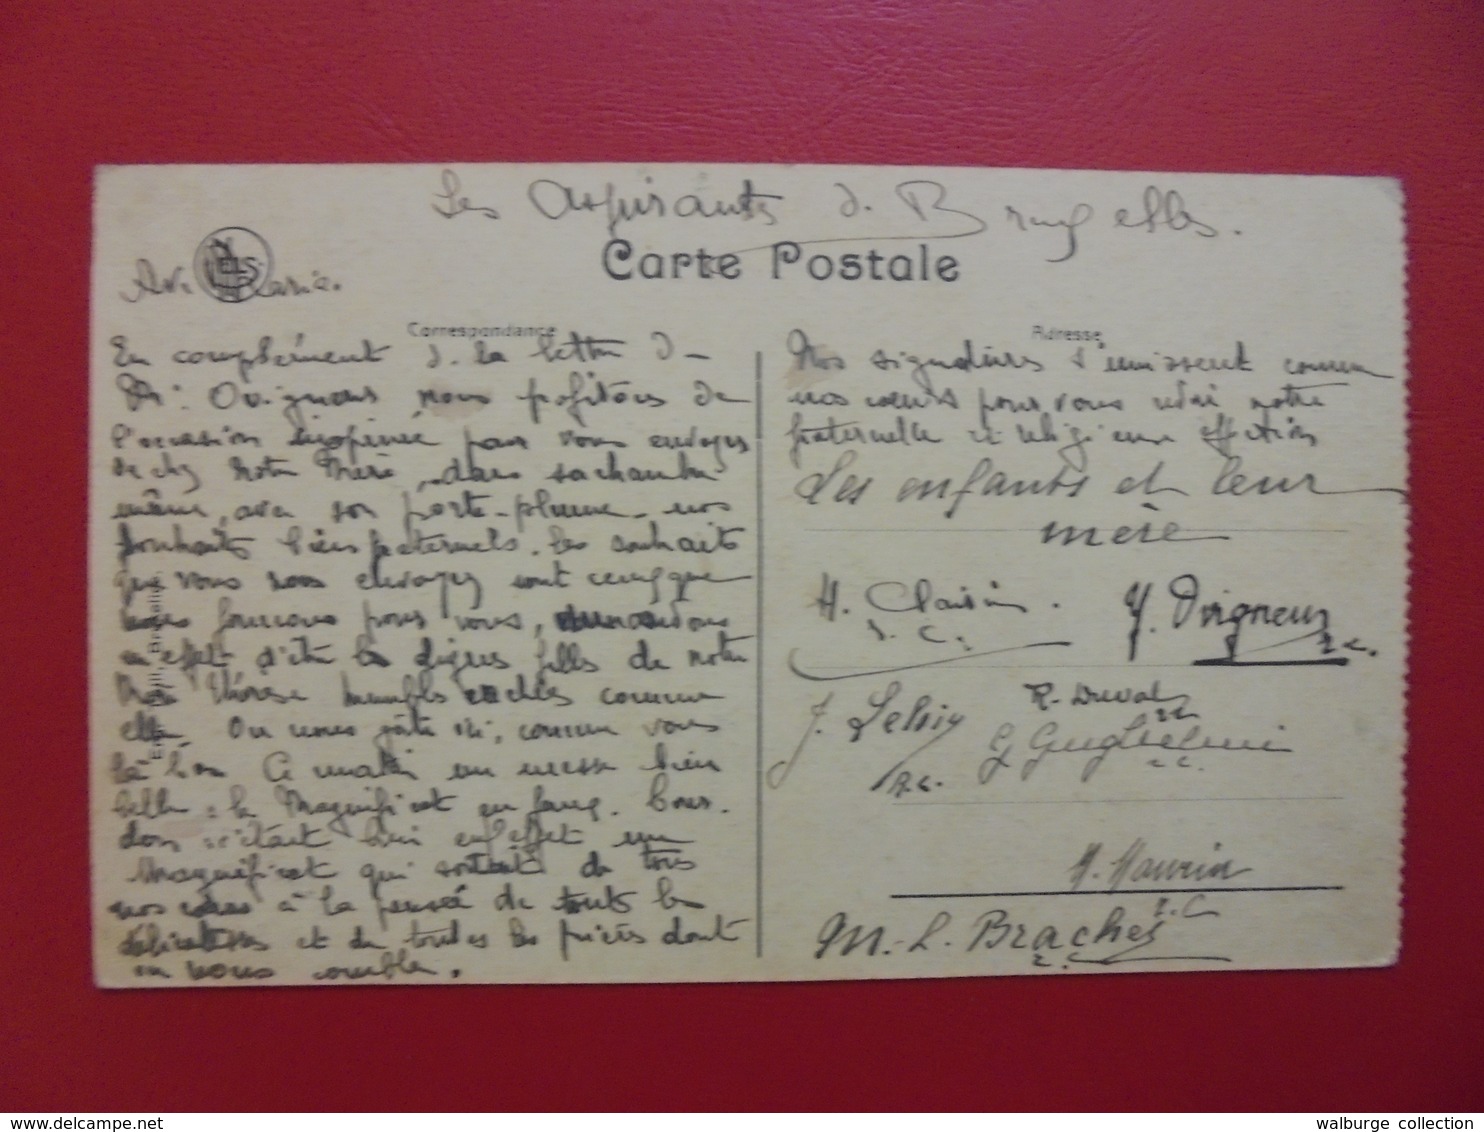 Les Aspirants d. Bruxelles.
Carte Postale
NELS
Ave Maria.
Correspondance
Adresse
En complément d. la lettre d
Mr: Ovigneur nous profitons de
l'occasion inopinée pour vous envoyer
de chez Notre Mère, dans sa chambre
même, avec son porte-plume nos
souhaits bien fraternels. Les souhaits
que vous nous envoyez sont ceux que
nous formons pour vous,
en effet d'être les dignes filles de notre
Mère Thérèse humbles comme
elle. On nous gâte ici, comme vous
là bas Ce matin une messe bien
belle: le Magnificat en
dons c'était bien en effet un
Magnificat qui sortait de tous
nos cœurs à la pensée de toutes les
délicatesses et de toutes les prières dont
on nous comble.
Nos signatures s'unissent comme
nos cœurs pour vous notre
fraternelle et religieuse affection
Les enfants et leur
mère
H.
r. c.
Y. Ovigneur
r.c.
J.
r.c.
R. Duval
r.c.
G Guglielmi
r.c.
M. Maurin
r.c
M.-L. Brachet
r.c.
walburge collection